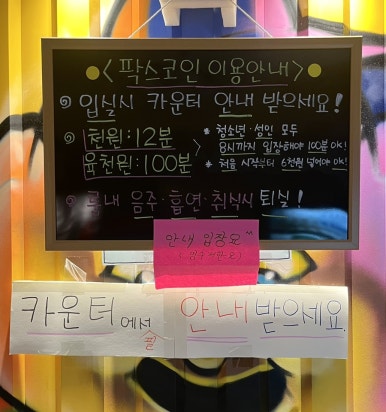 <팍스코인 이용안내>
입실시 카운터 안내 받으세요!
1천원:12분
육천원:100분
* 청소년·성인 모두
8시까지 입장해야 100분 ok!
* 처음 시작부터 6천원 넣어야 ok!
룸내 음주·흡연·취식시 퇴실!
안내 입장요
카운터에서
안내 받으세요.